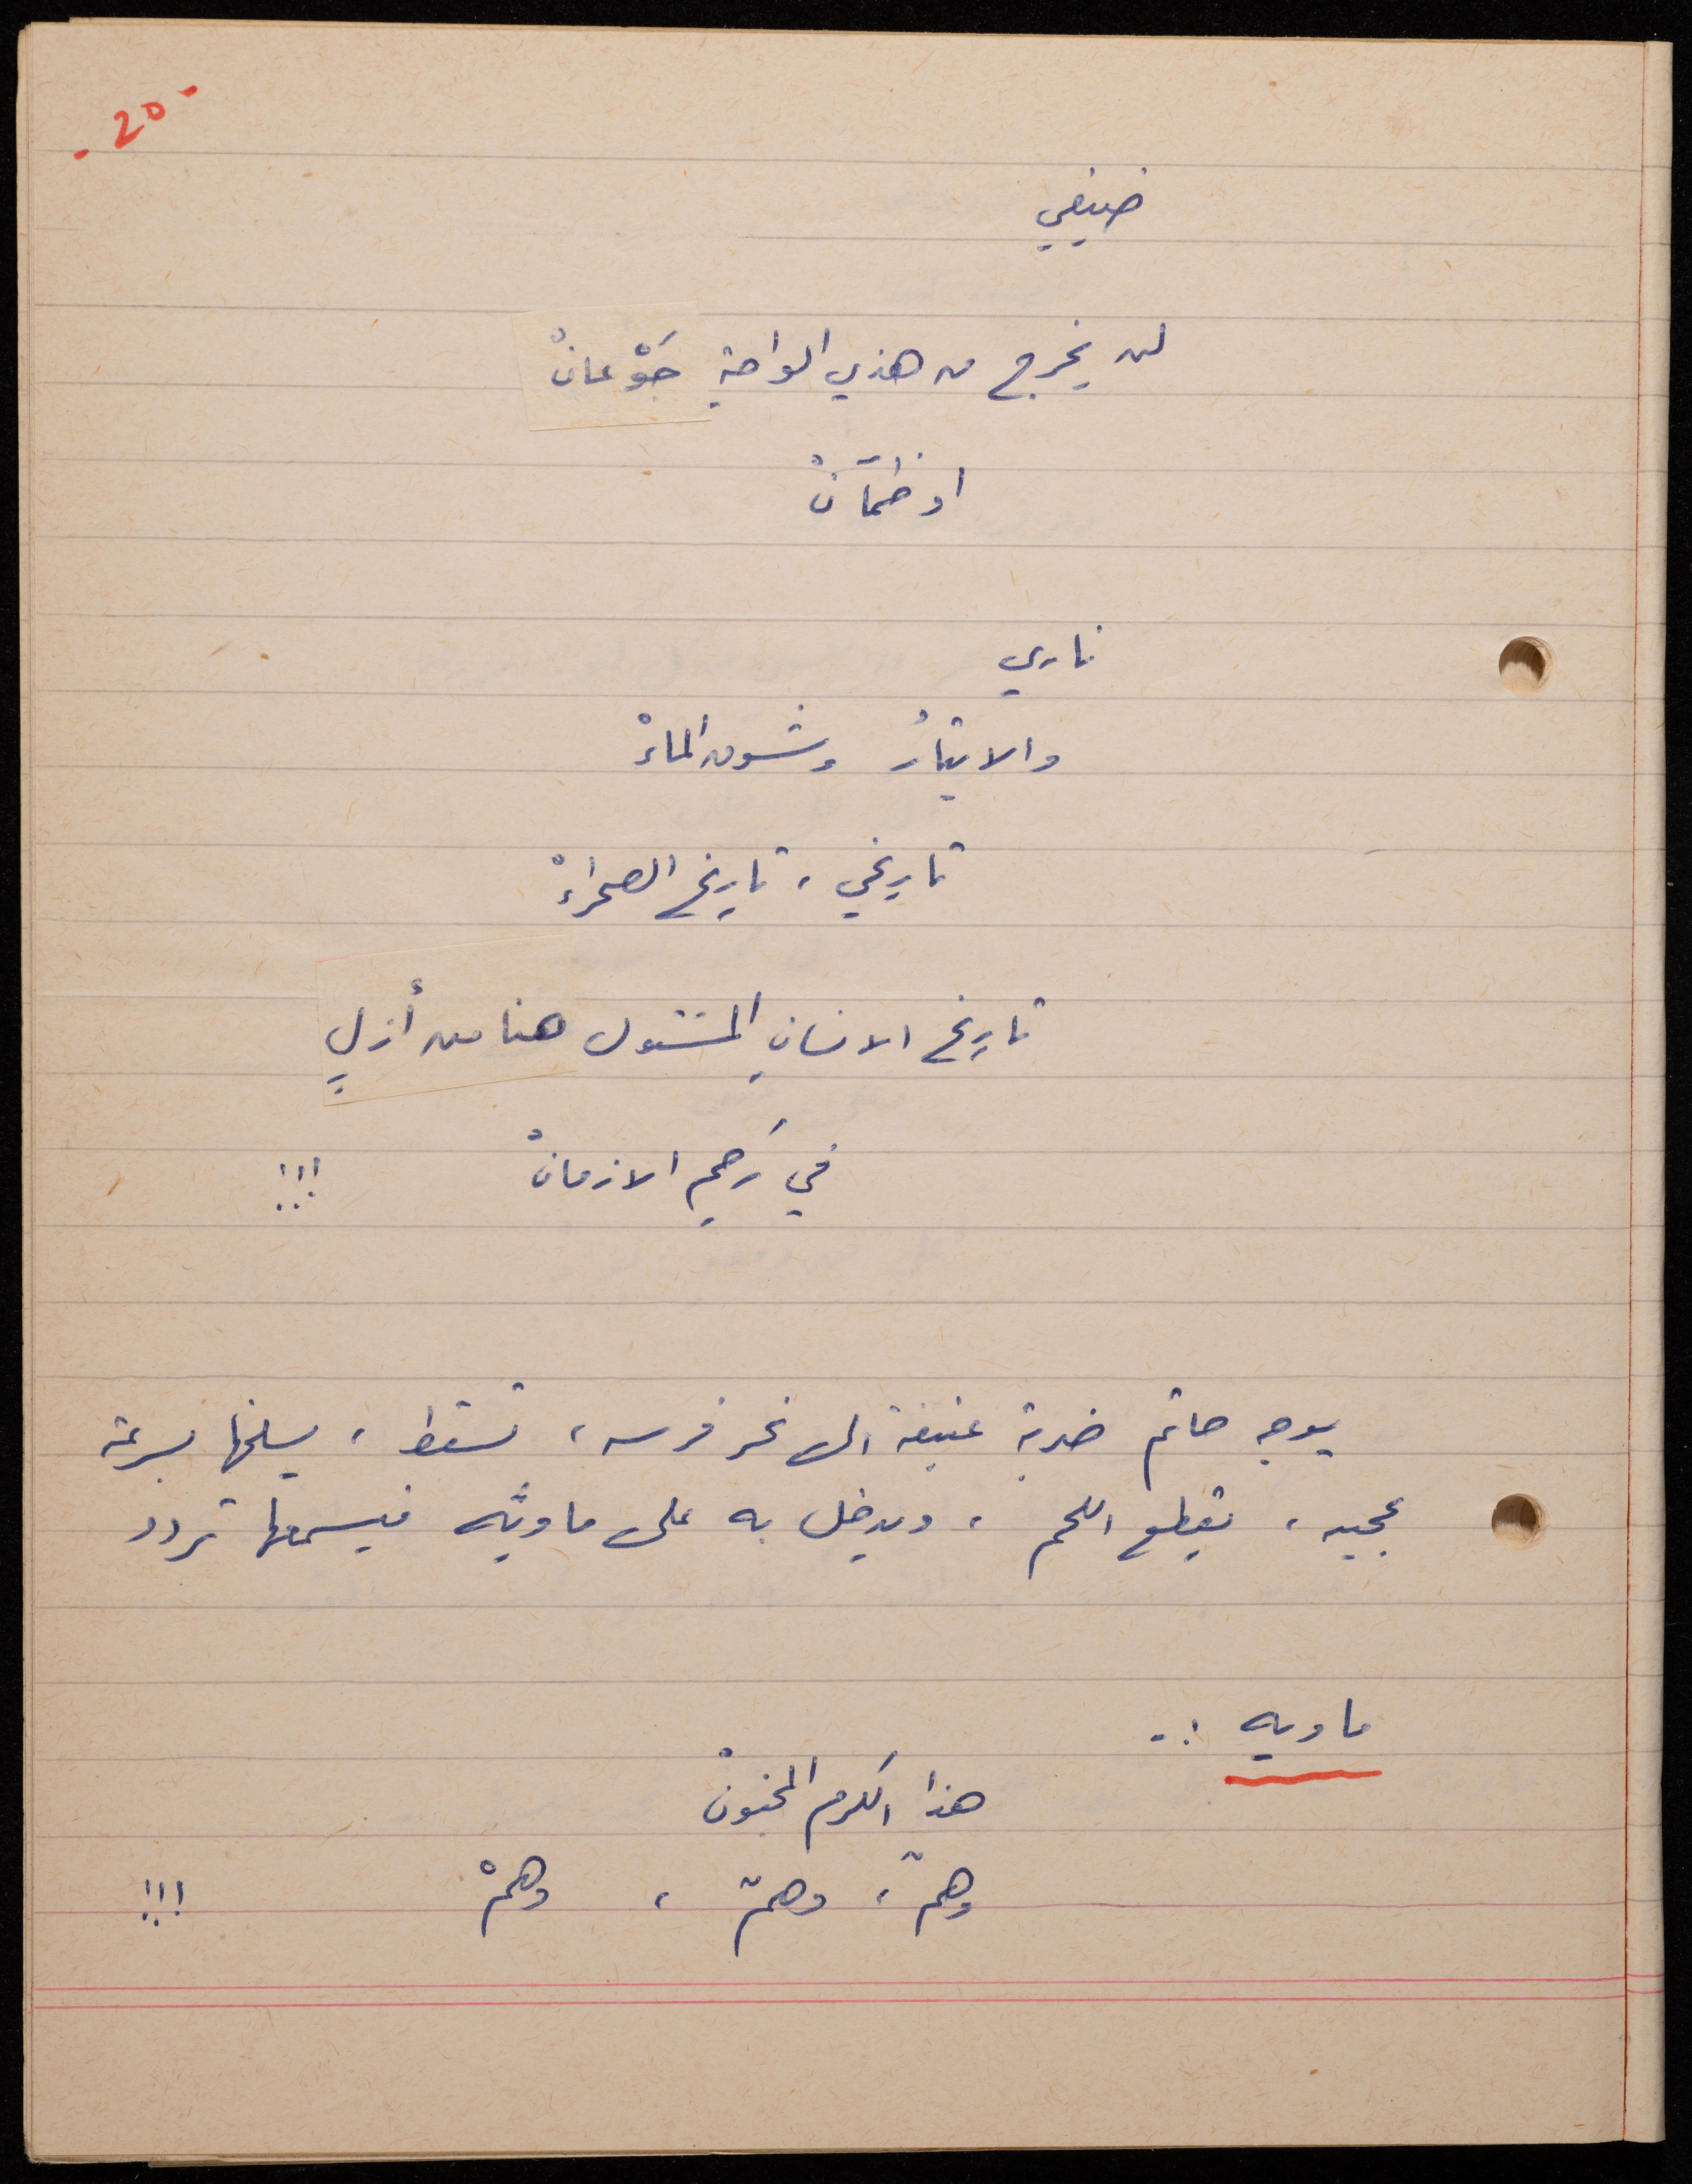 - 20 -
ضيفي
لن يخرج من هذي الواحةِ جَوْعانْ
او ظمآنْ
ناري
والايثارُ وشوق الماءْ
تاريخي ، تاريخ الصحراءْ
تاريخ الانسانِ هنا من أزلٍ
في رَحِمِ الازمانْ !!!
يوجه حاتم ضربة عنيفة الى نحر فرسه ، تسقط ، يسلخها بسرعة
عجيبه ، يقطع اللحم ، ويدخل به على ماويّه فيسمعها تردد
ماويه :-
هذا الكرم المجنونْ
وهمٌ ، وهمٌ ، وهمْ !!!